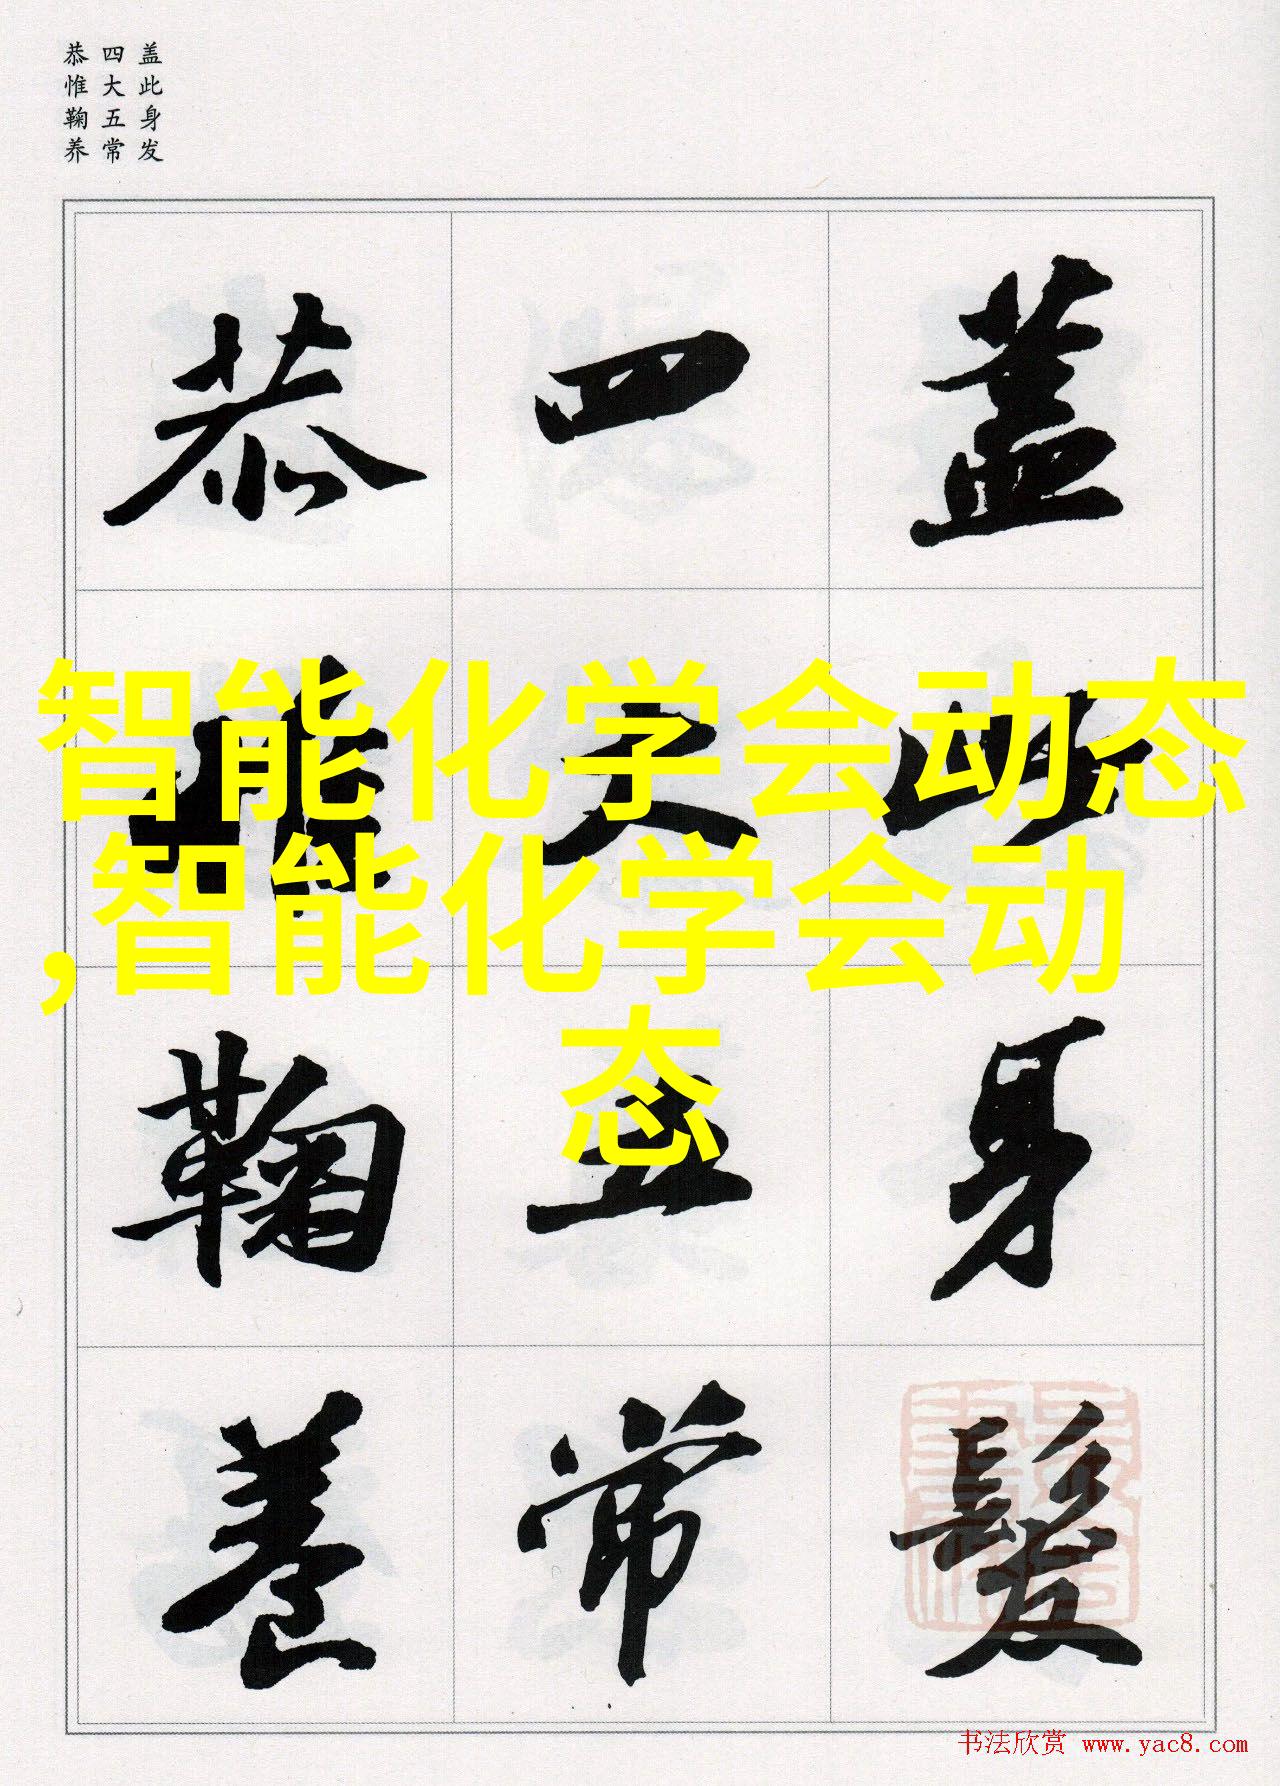 盖此身发
四大五常
恭惟鞠养
盖此身髮
四大五常
恭惟鞠養
智能化学会动态
,智能化学会动
态
书法欣赏 www.yac8.com